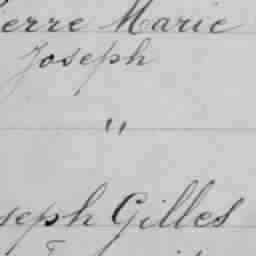 erre Marie
Joseph
"
seph Gilles